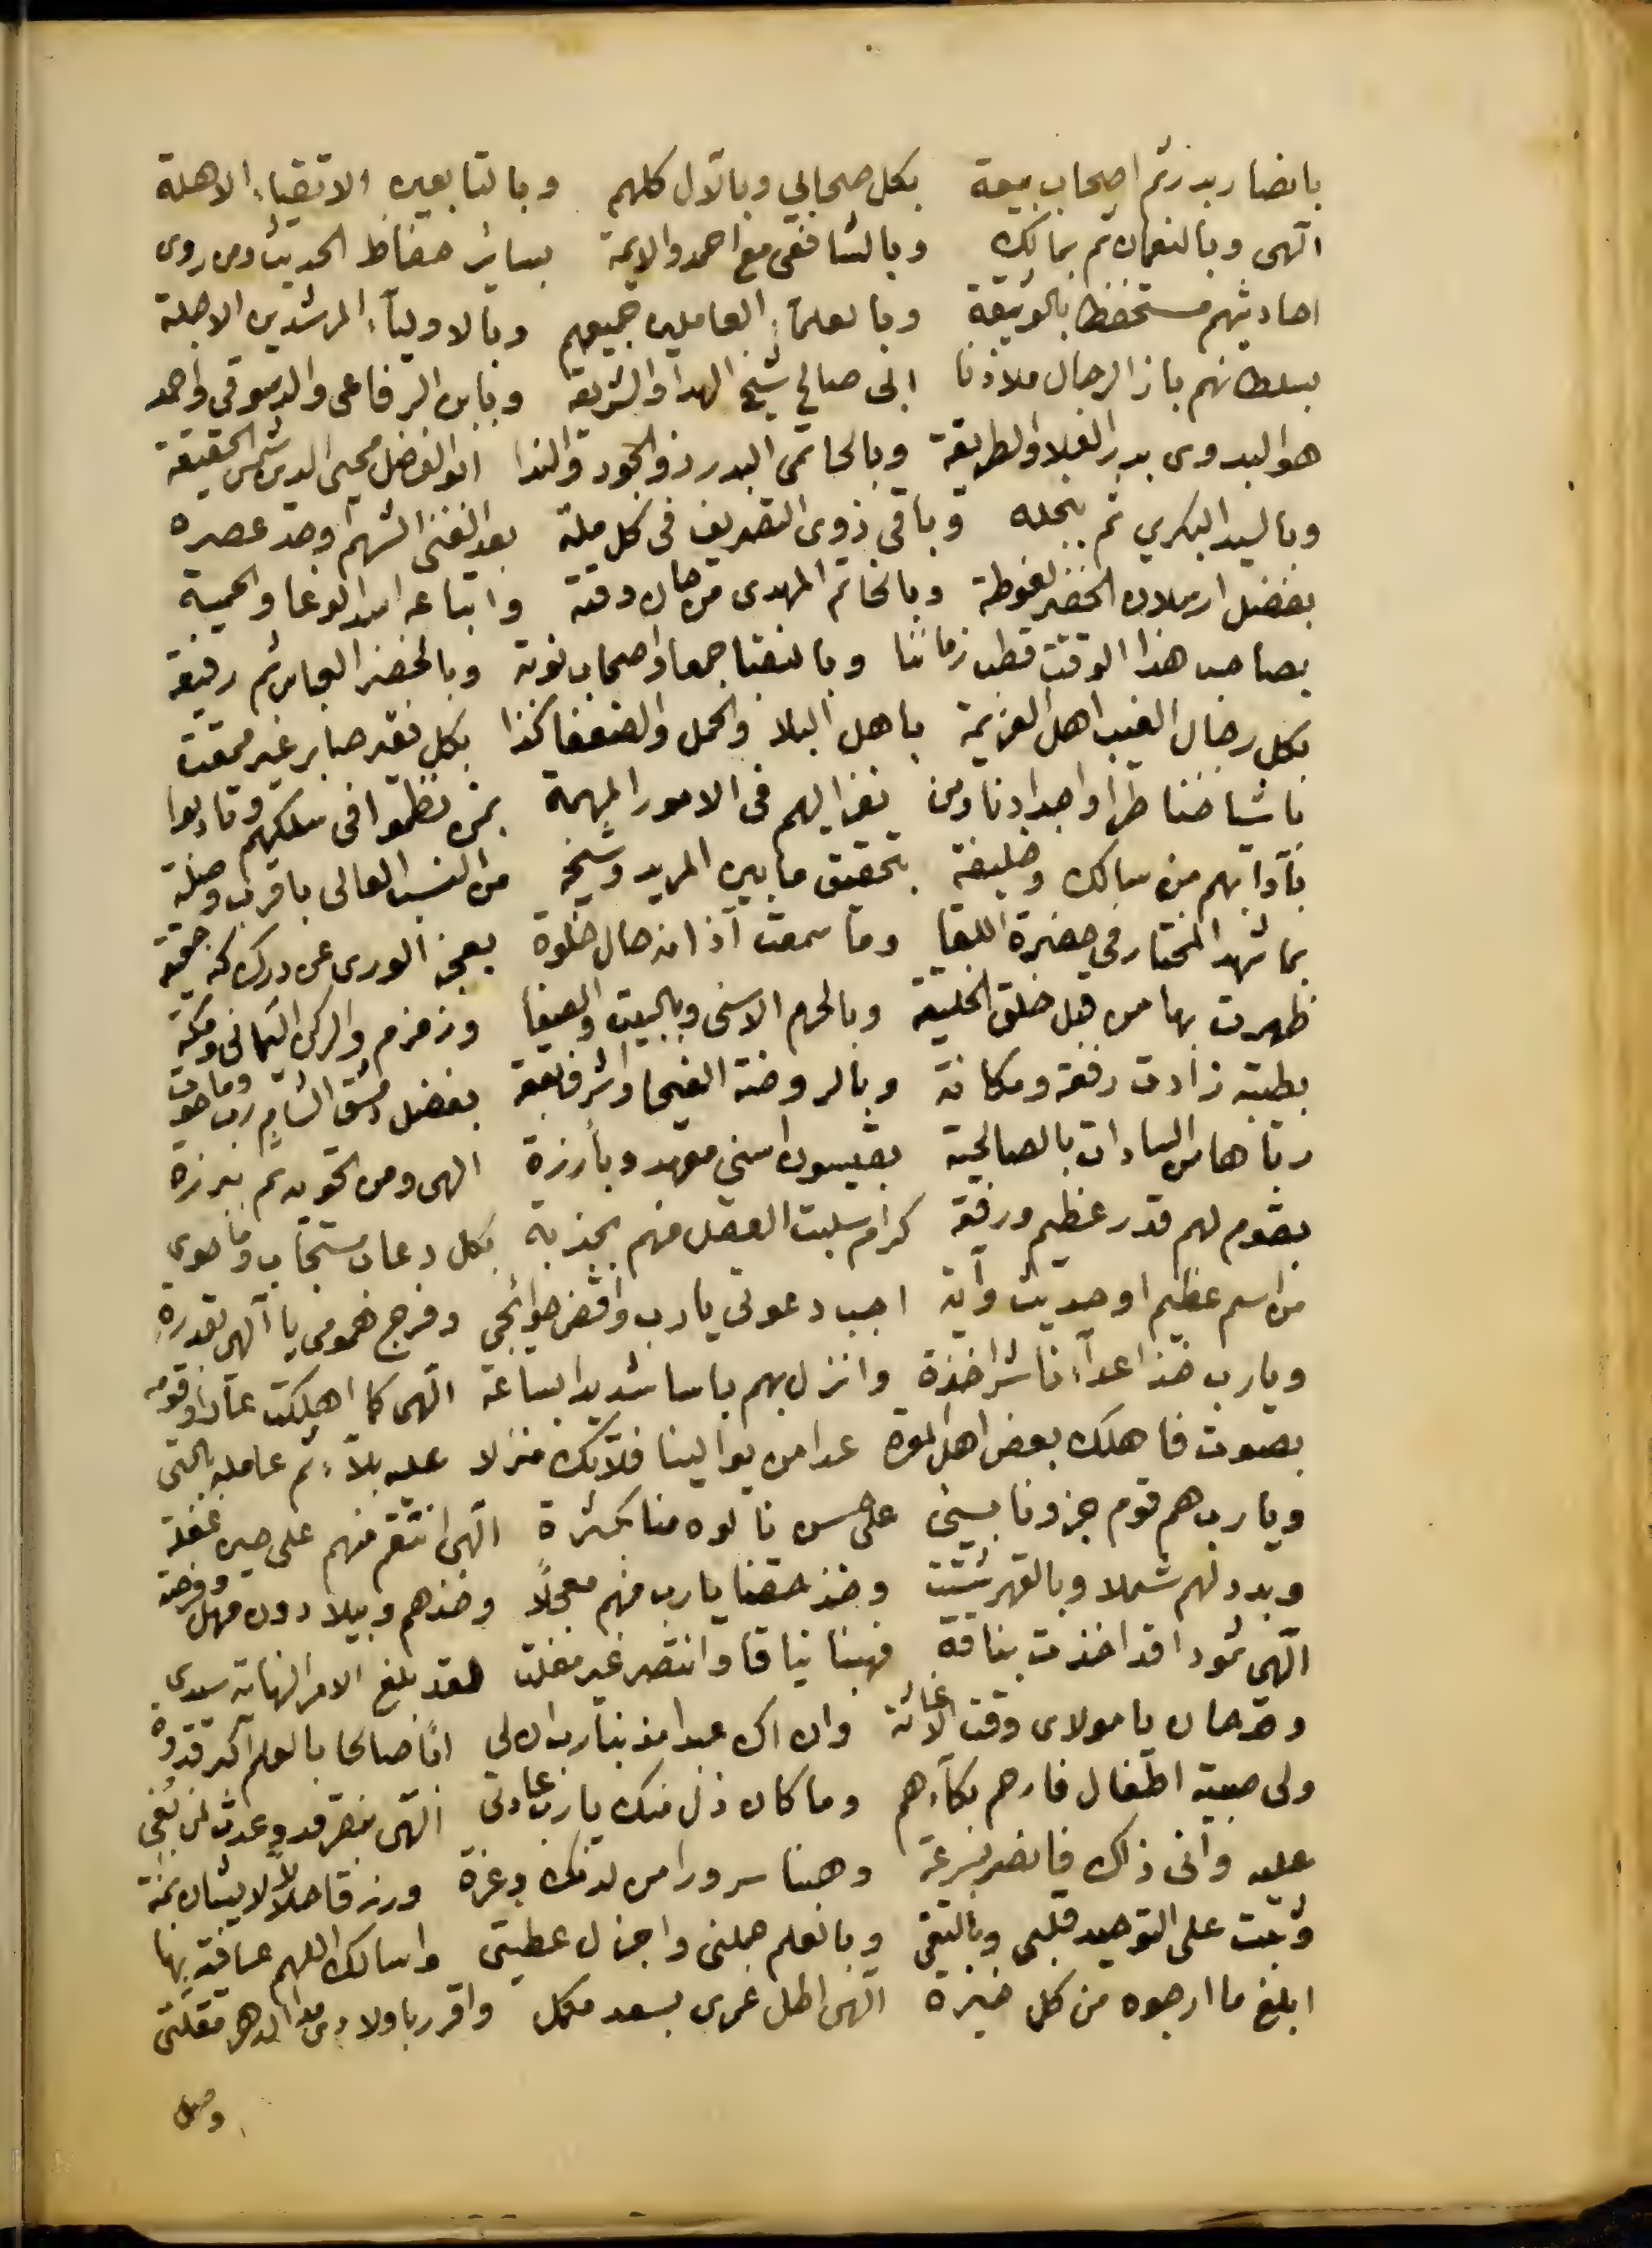 بانصار بدر ثم اصحاب بيعة بكل صحابي وبالآل كلهم وبالتابعين الاتقياء الاهلة
الهى وبالنعمان ثم بمالك وبالشافعى مع احمد والايمة بسائر حفاظ الحديث ومن روى
احاديثهم مستحفظا بالوثيقة وبالعلماء العاملين جميعهم وبالاولياء المرشدين الاجلة
بسلطانهم باز الرجال ملاذنا ابى صالح شيخ الهدا والشريعة وبابن الرفاعى والدسوقى واحمد
هو البدوى بدر العلا والطريقة وبالحاتمى البدر ذو الجود والندا ابو الفضل محيى الدين شمس الحقيقة
وبالسيد البكري ثم بنجله وباقى ذوى التصريف فى كل ملة بعبد الغنى الشهم اوحد عصره
بفضل ارسلان الخضر لغوطة وبالخاتم المهدى من حان وقته واتباعه اسد الوغا والحمية
بصاحب هذا الوقت قطب زماننا وبالنقبا جمعا واصحاب نوبة وبالخضر العباس ثم رفيقه
بكل رجال الغيب اهل العزيمة باهل البلا والحمل والضعفا كذا بكل فقير صابر غير ممقت
باشياخنا طرا واجدادنا ومن نفز اليهم فى الامور المهمة بمن نظموا فى سلكهم وتادبوا
بآدابهم من سالك وخليفة بتحقيق ما بين المريد وشيخه من النسب العالى باقرب وصلة
بما شهد المختار فى حضرة اللقا وما سمعت آذانه حال خلوة بعجز الورى عن درك كنه حقيقة
ظهرت بها من قبل خلق الخليقة وبالحرم الاسنى وبالبيت والصفا وزمزم والركن اليمانى ومكة
بطيبة زادت رفعة ومكانة وبالروضة الفيحا واشرف بقعة بفضل دمشق الشام رب وما حوت
رباها من السادات بالصالحية بقيسون اسنى معهد وبأرزة الهى ومن تحويه ثم ببرزة
بقوم لهم قدر عظيم ورفعة كرام سلبت العقل منهم بجذبة بكل دعا مستجاب وما حوى
من اسم عظيم او حديث وآية اجب دعوتى يارب واقض حوائجى وفرج همومى يا الهى بقدرة
ويارب خذ اعداءنا شر اخذة وانزل بهم باسا شديدا بساعة الهى كما اهلكت عادا وقومه
بصوت فاهلك بعض اهل المودة عدا من يوالينا فلا تك منزلا عليه بلاء ثم عامله بالتى
ويارب هم قوم جزونا بسيئ على حسن نالوه منا بكثرة الهى انتقم منهم على حين غفلة
وبدد لهم شملا وبالقهر شتت وخذ حقنا يارب منهم معجلا وخذهم وبيلا دون مهل وفرصة
الهى ثمودا قد اخذت بناقة فهبنا نياقا وانتصر غير مفلت لقد بلغ الامر النهاية سيدى
وقد حان يا مولاى وقت الاغاثة وان اك عبدا مذنبا رب ان لى ابا صالحا بالعلم اكبر قدوة
ولى صبية اطفال فارحم بكاءهم وما كان ذل منك يارب عادتى الهى بنصر قد وعدت لمن بُغى
عليه وانى ذاك فانصر بسرعة وهبنا سرورا من لدنك وعزة ورزقا حلالا لا يشان بمنة
وثبت على التوحيد قلبى وبالتقى وبالعلم جملنى واجزل عطيتى واسالك اللهم عافية بها
ابلغ ما ارجوه من كل خيرة الهى اطل عمرى بسعد مكمل واقرر باولادى مدا الدهر مقلتى
وصل